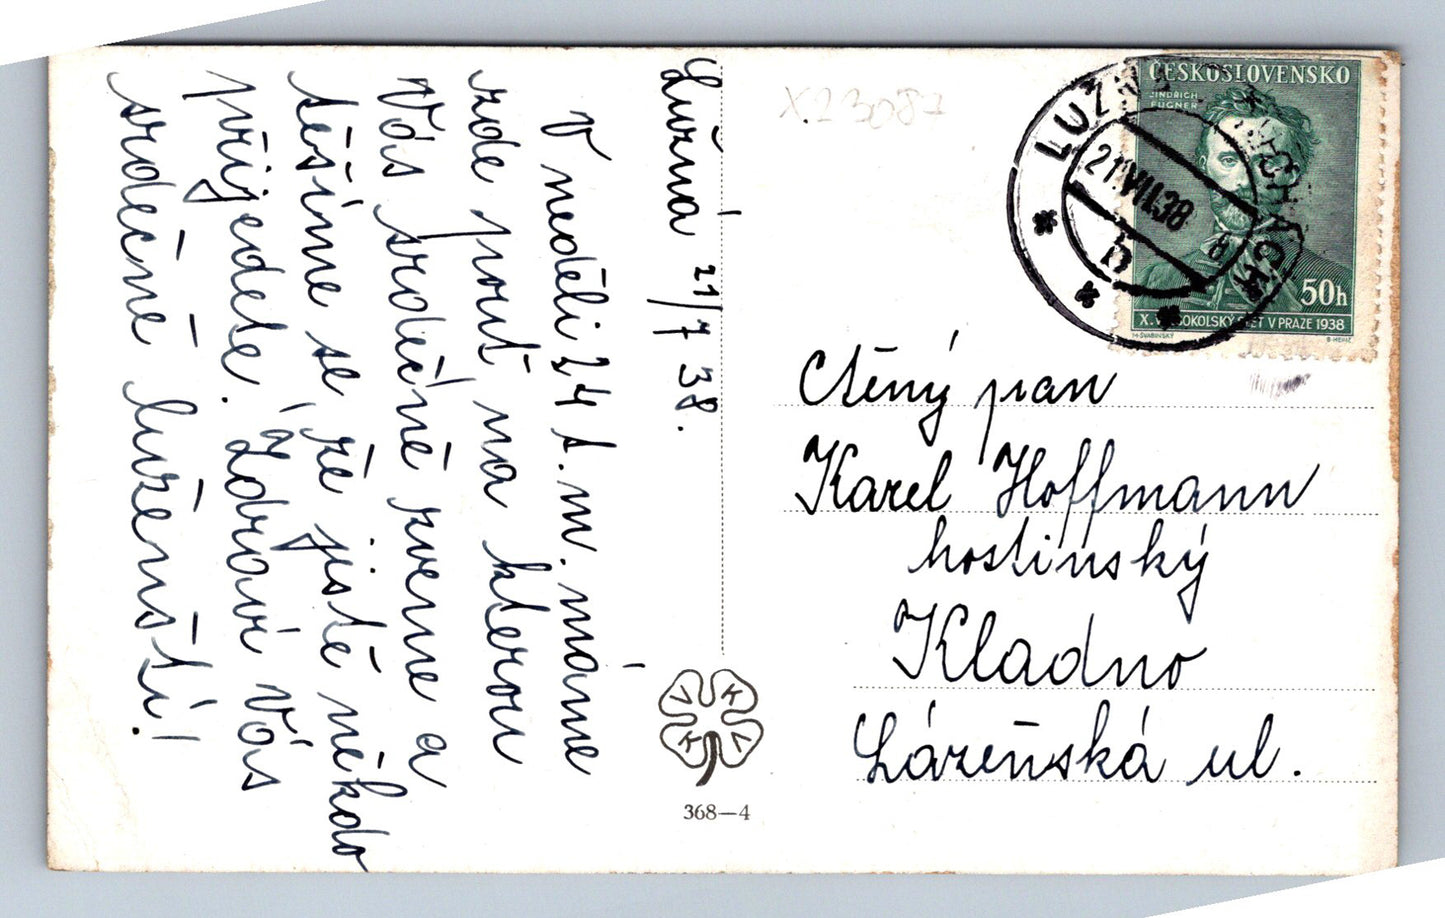 Lužná 21/7 38.
V neděli 24 t. m. máme
zde pouť na kterou
Vás srdečně zveme a
těšíme se, že jistě někdo
přijedete. Zdraví Vás
a
srdečně luženští!
X23087
ČESKOSLOVENSKO
JINDŘICH
FÜGNER
50h
X. VŠESOKOLSKÝ SLET V PRAZE 1938
M·ŠVABINSKÝ
B·HEINZ
LUŽNÁ
21.VII.38
Ctěný pan
Karel Hoffmann
hostinský
Kladno
Lázeňská ul.
V K K V
368—4